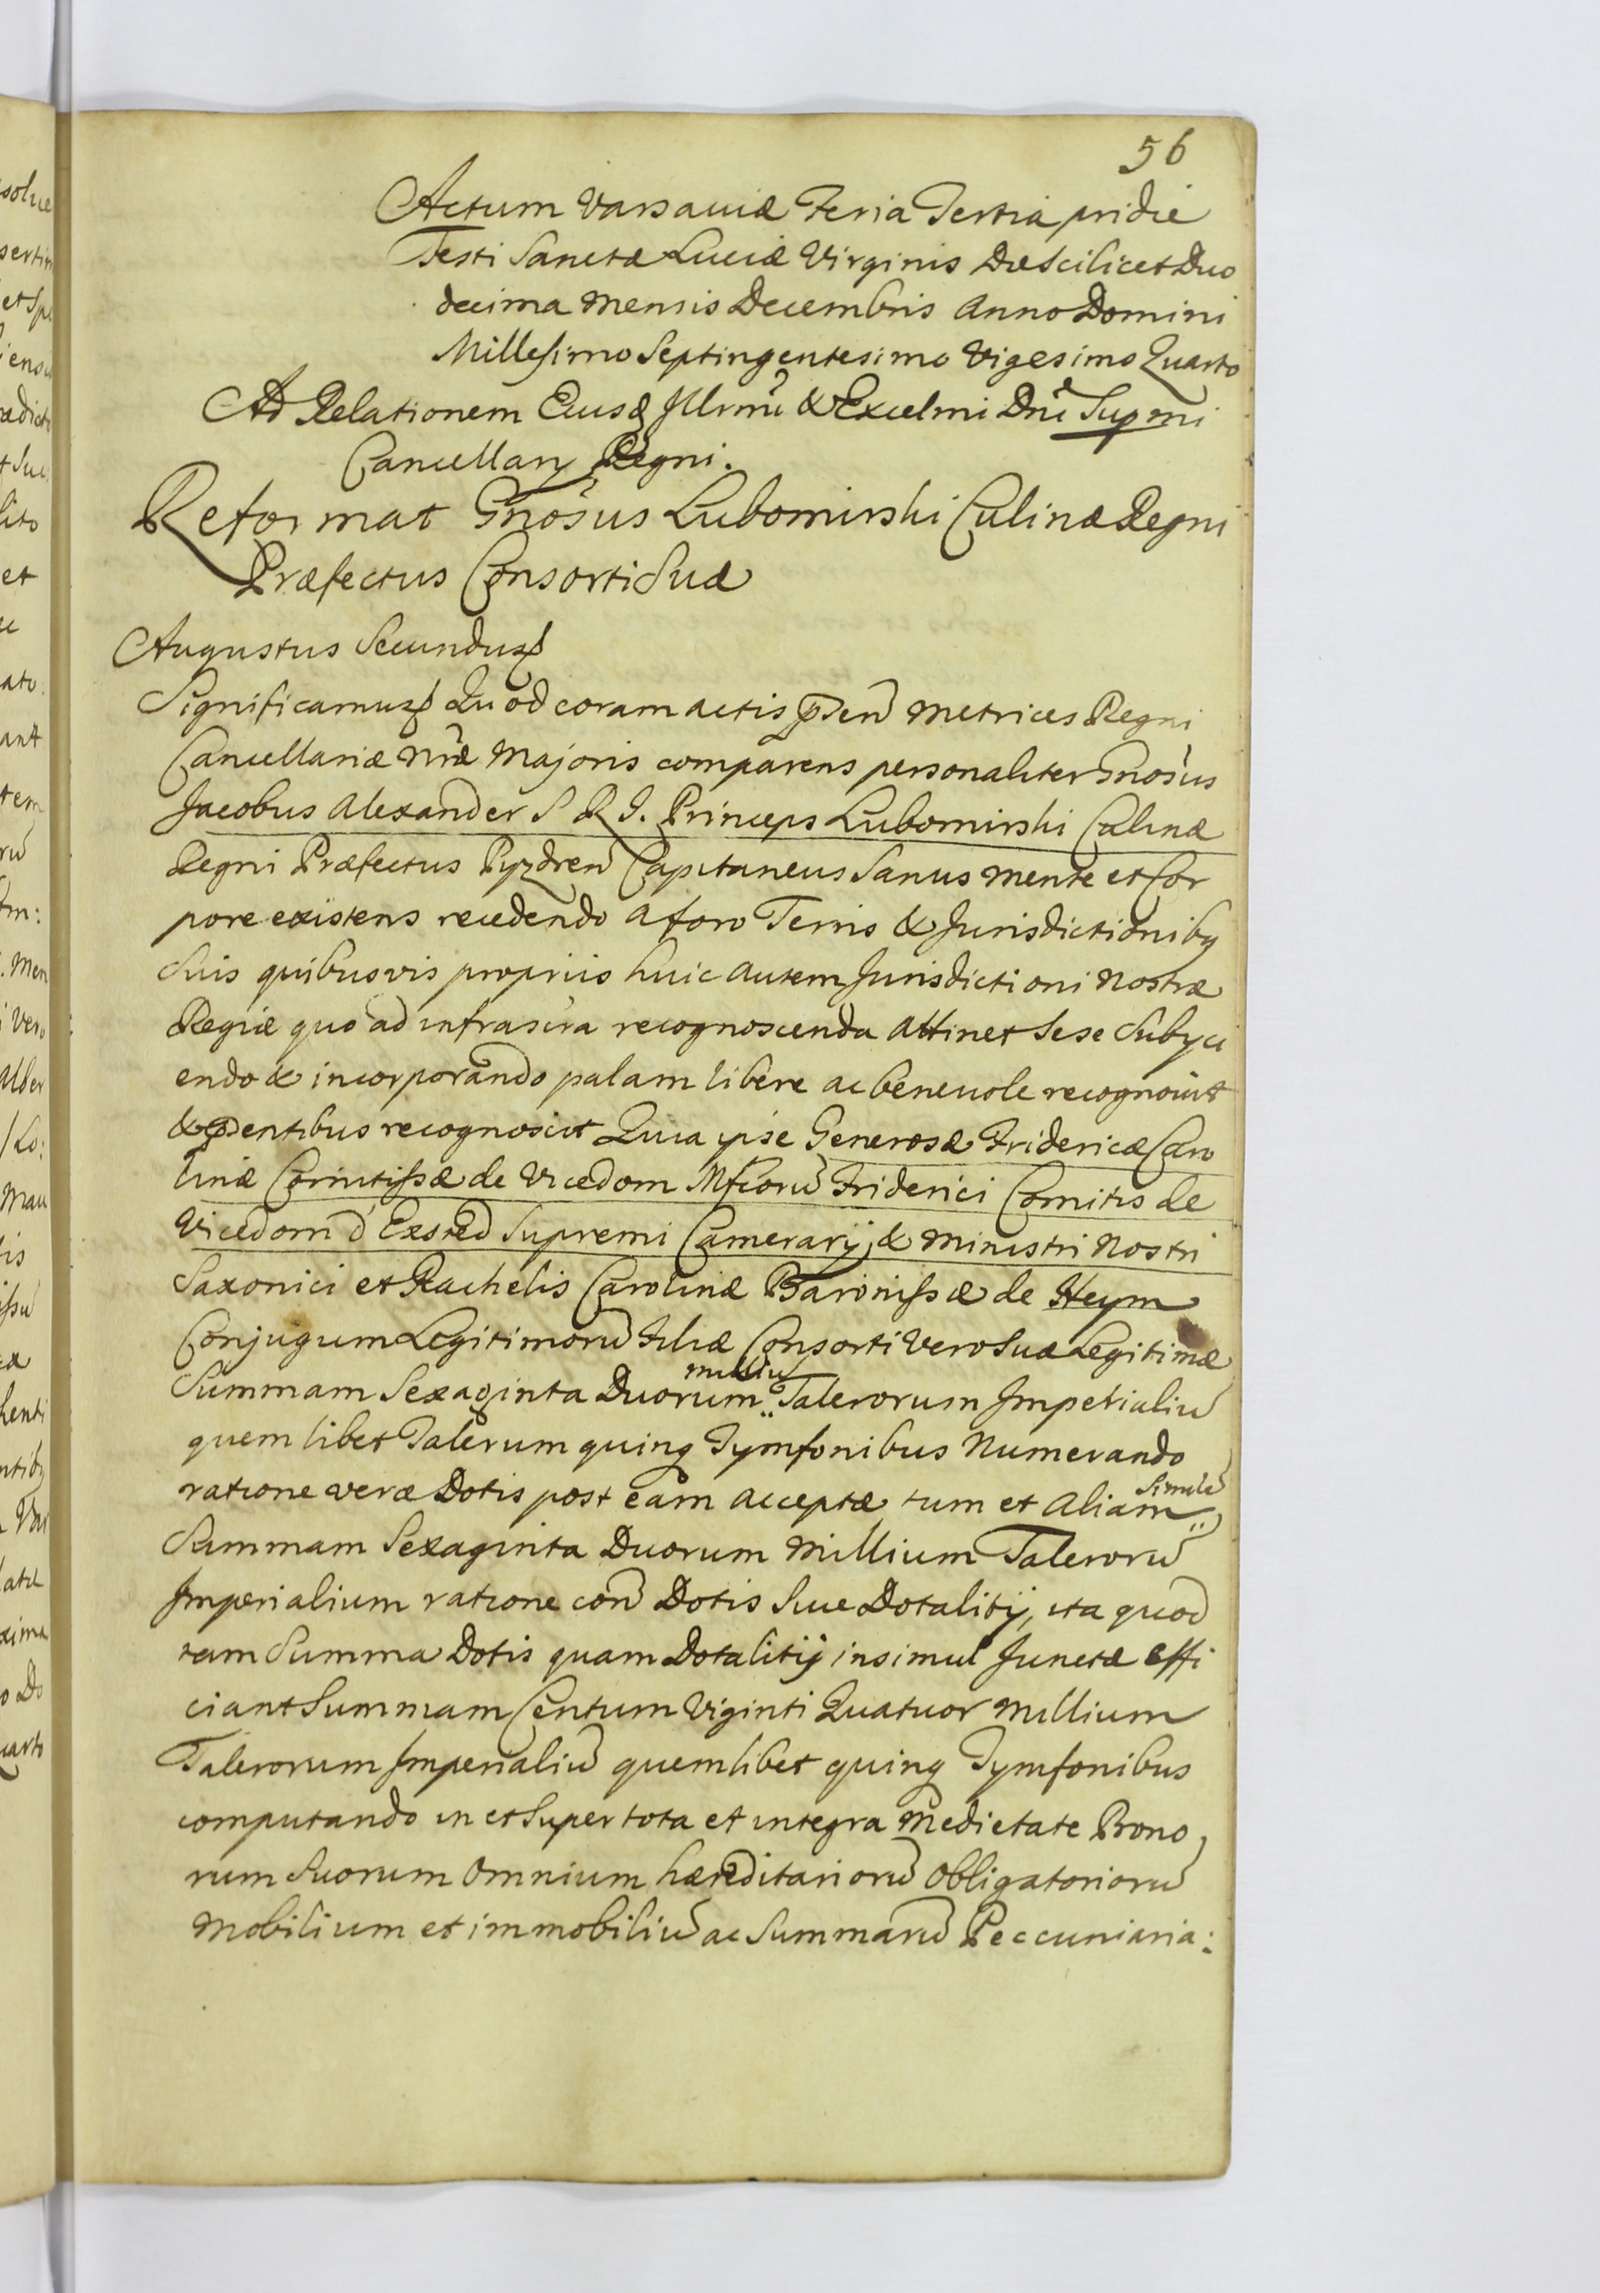 56
Actum Varsaviæ Feria Tertia pridie
Festi Sanctæ Luciæ Virginis Die Scilicet Duo
decima Mensis Decembris Anno Domini
Millesimo Septingentesimo Vigesimo Quarto
Ad Relationem Eiusd Illrmi & Excelmi Dni Supmi
Cancellarÿ Regni.
Reformat Gnosus Lubomirski Culinæ Regni
Præfectus Consorti Suæ
Augustus Secundus
Significamus Quod coram actis pden Metrices Regni
Cancellariæ Nræ Majoris comparens personaliter Gnosus
Jacobus Alexander S R I. Princeps Lubomirski Culinæ
Regni Præfectus Pyzdren Capitaneus Sanus mente et Cor
pore existens recedendo a foro Terris & Jurisdictionibq
Suis quibusvis proprijs huic autem Jurisdictioni Nostræ
Regiæ quo ad infrascra recognoscenda attinet Sese Subyci
endo & incorporando palam libere ac benevole recognovit
& pdentibus recognoscit Quia ipse Generosæ Fridericæ Caro
linæ Comitissæ de Vicedom Mficorū Friderici Comitis de
Vicedom d Exsted Supremi Camerarÿ & Ministri Nostri
Saxonici et Rachelis Carolinæ Baronissæ de Heym
Conjugum Legitimorū Filiæ Consorti Vero Suæ Legitimæ
milliū
Summam Sexaginta Duorum Talerorum Imperialiū
quemlibet Talerum quinq Tymfonibus Numerando
Similē
ratione veræ Dotis post eam acceptæ tum et Aliam
Summam Sexaginta Duorum Millium Talerorū
Imperialium ratione con Dotis Sive Dotalitÿ, ita quod
tam Summa Dotis quam Dotalitÿ insimul Junctæ effi
ciant Summam Centum Viginti Quatuor Millium
Talerorum Imperialiū quemlibet quinq Tymfonibus
computando in et Super tota et integra Medietate Bono
rum Suorum Omnium hæreditariorū Obligatoriorū
Mobilium et immobiliū ac Summarū Peccuniaria: